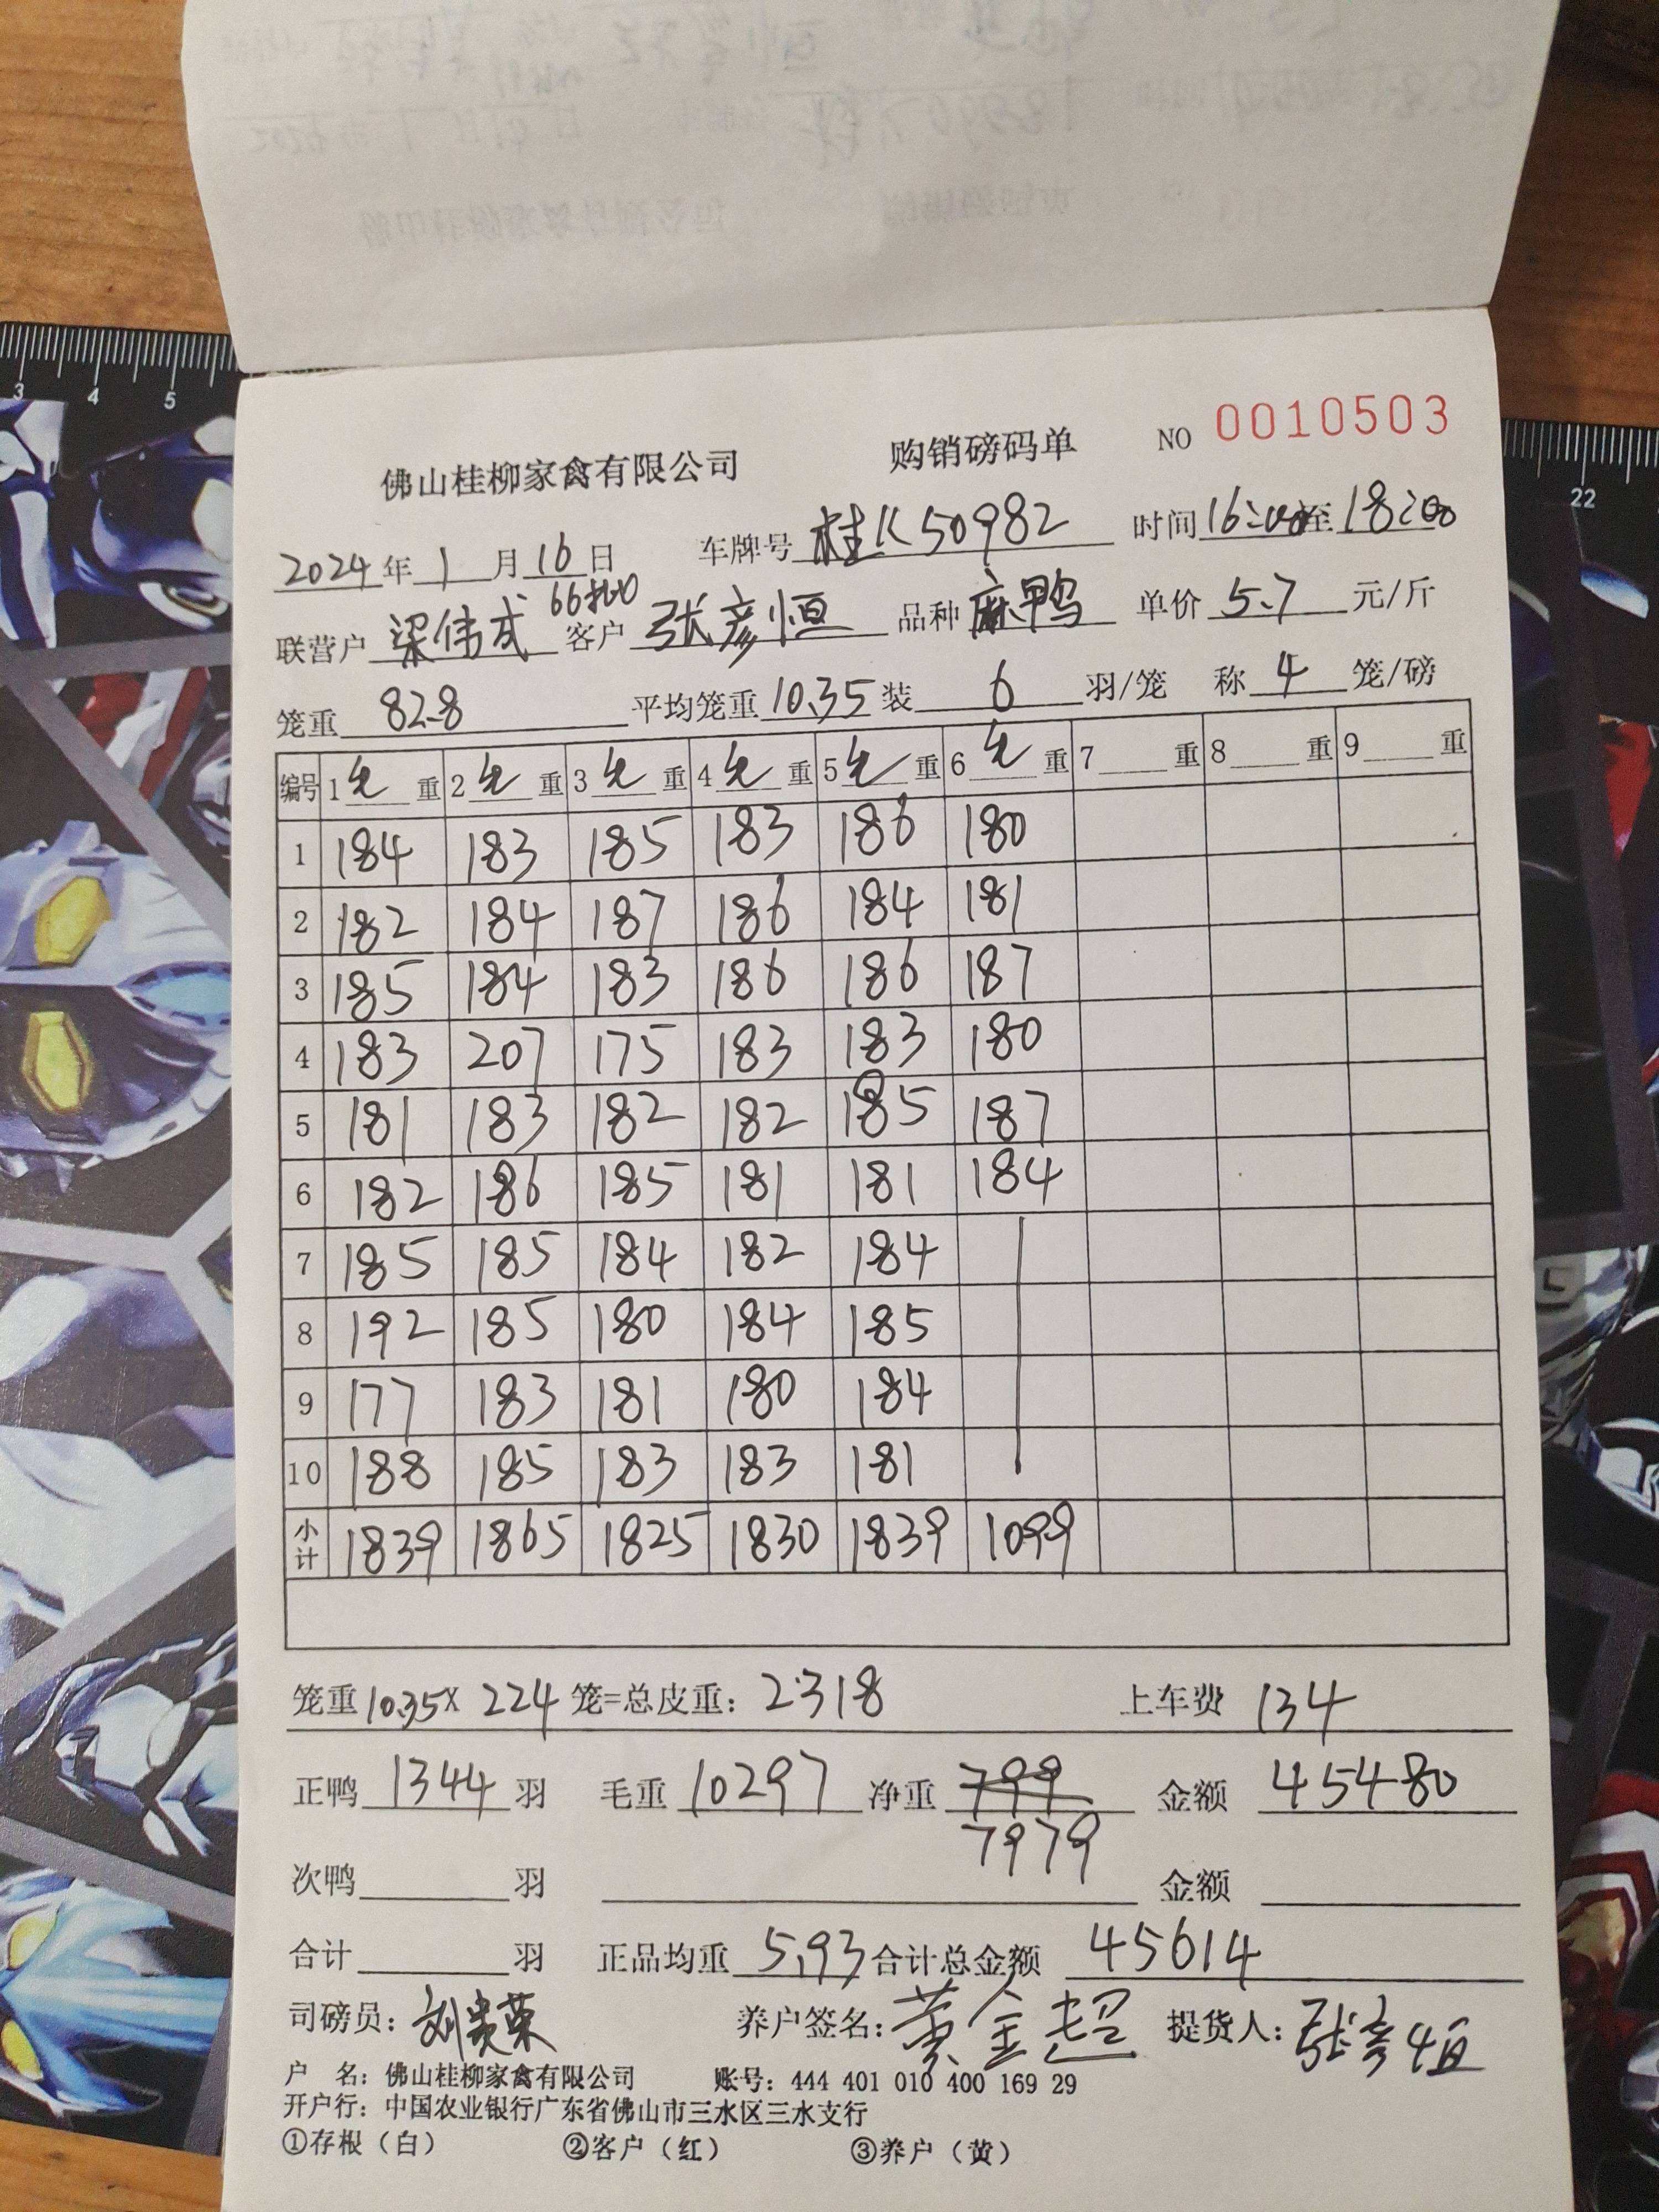 3 4 5
22
佛山桂柳家禽有限公司 购销磅码单 NO 0010503
2024年1月16日 车牌号 桂K50982 时间16:00至18:00
联营户 梁伟成 客户 张彦恒 品种 麻鸭 单价 5.7 元/斤
笼重 82.8 平均笼重 10.35 装 6 羽/笼 称 4 笼/磅
编号 1 毛 重 2 毛 重 3 毛 重 4 毛 重 5 毛 重 6 毛 重 7 重 8 重 9 重
1 184 183 185 183 186 180
2 182 184 187 186 184 181
3 185 184 183 186 186 187
4 183 207 175 183 183 180
5 181 183 182 182 185 187
6 182 186 185 181 181 184
7 185 185 184 182 184
8 192 185 180 184 185
9 177 183 181 180 184
10 188 185 183 183 181
小计 1839 1865 1825 1830 1839 1099
笼重 10.35 X 224 笼=总皮重: 2318 上车费 134
正鸭 1344 羽 毛重 10297 净重 799 金额 45480
7979
次鸭 羽 金额
合计 羽 正品均重 5.93 合计总金额 45614
司磅员: 刘贵荣 养户签名: 黄金超 提货人: 张彦恒
户 名: 佛山桂柳家禽有限公司 账号: 444 401 010 400 169 29
开户行: 中国农业银行广东省佛山市三水区三水支行
①存根（白） ②客户（红） ③养户（黄）